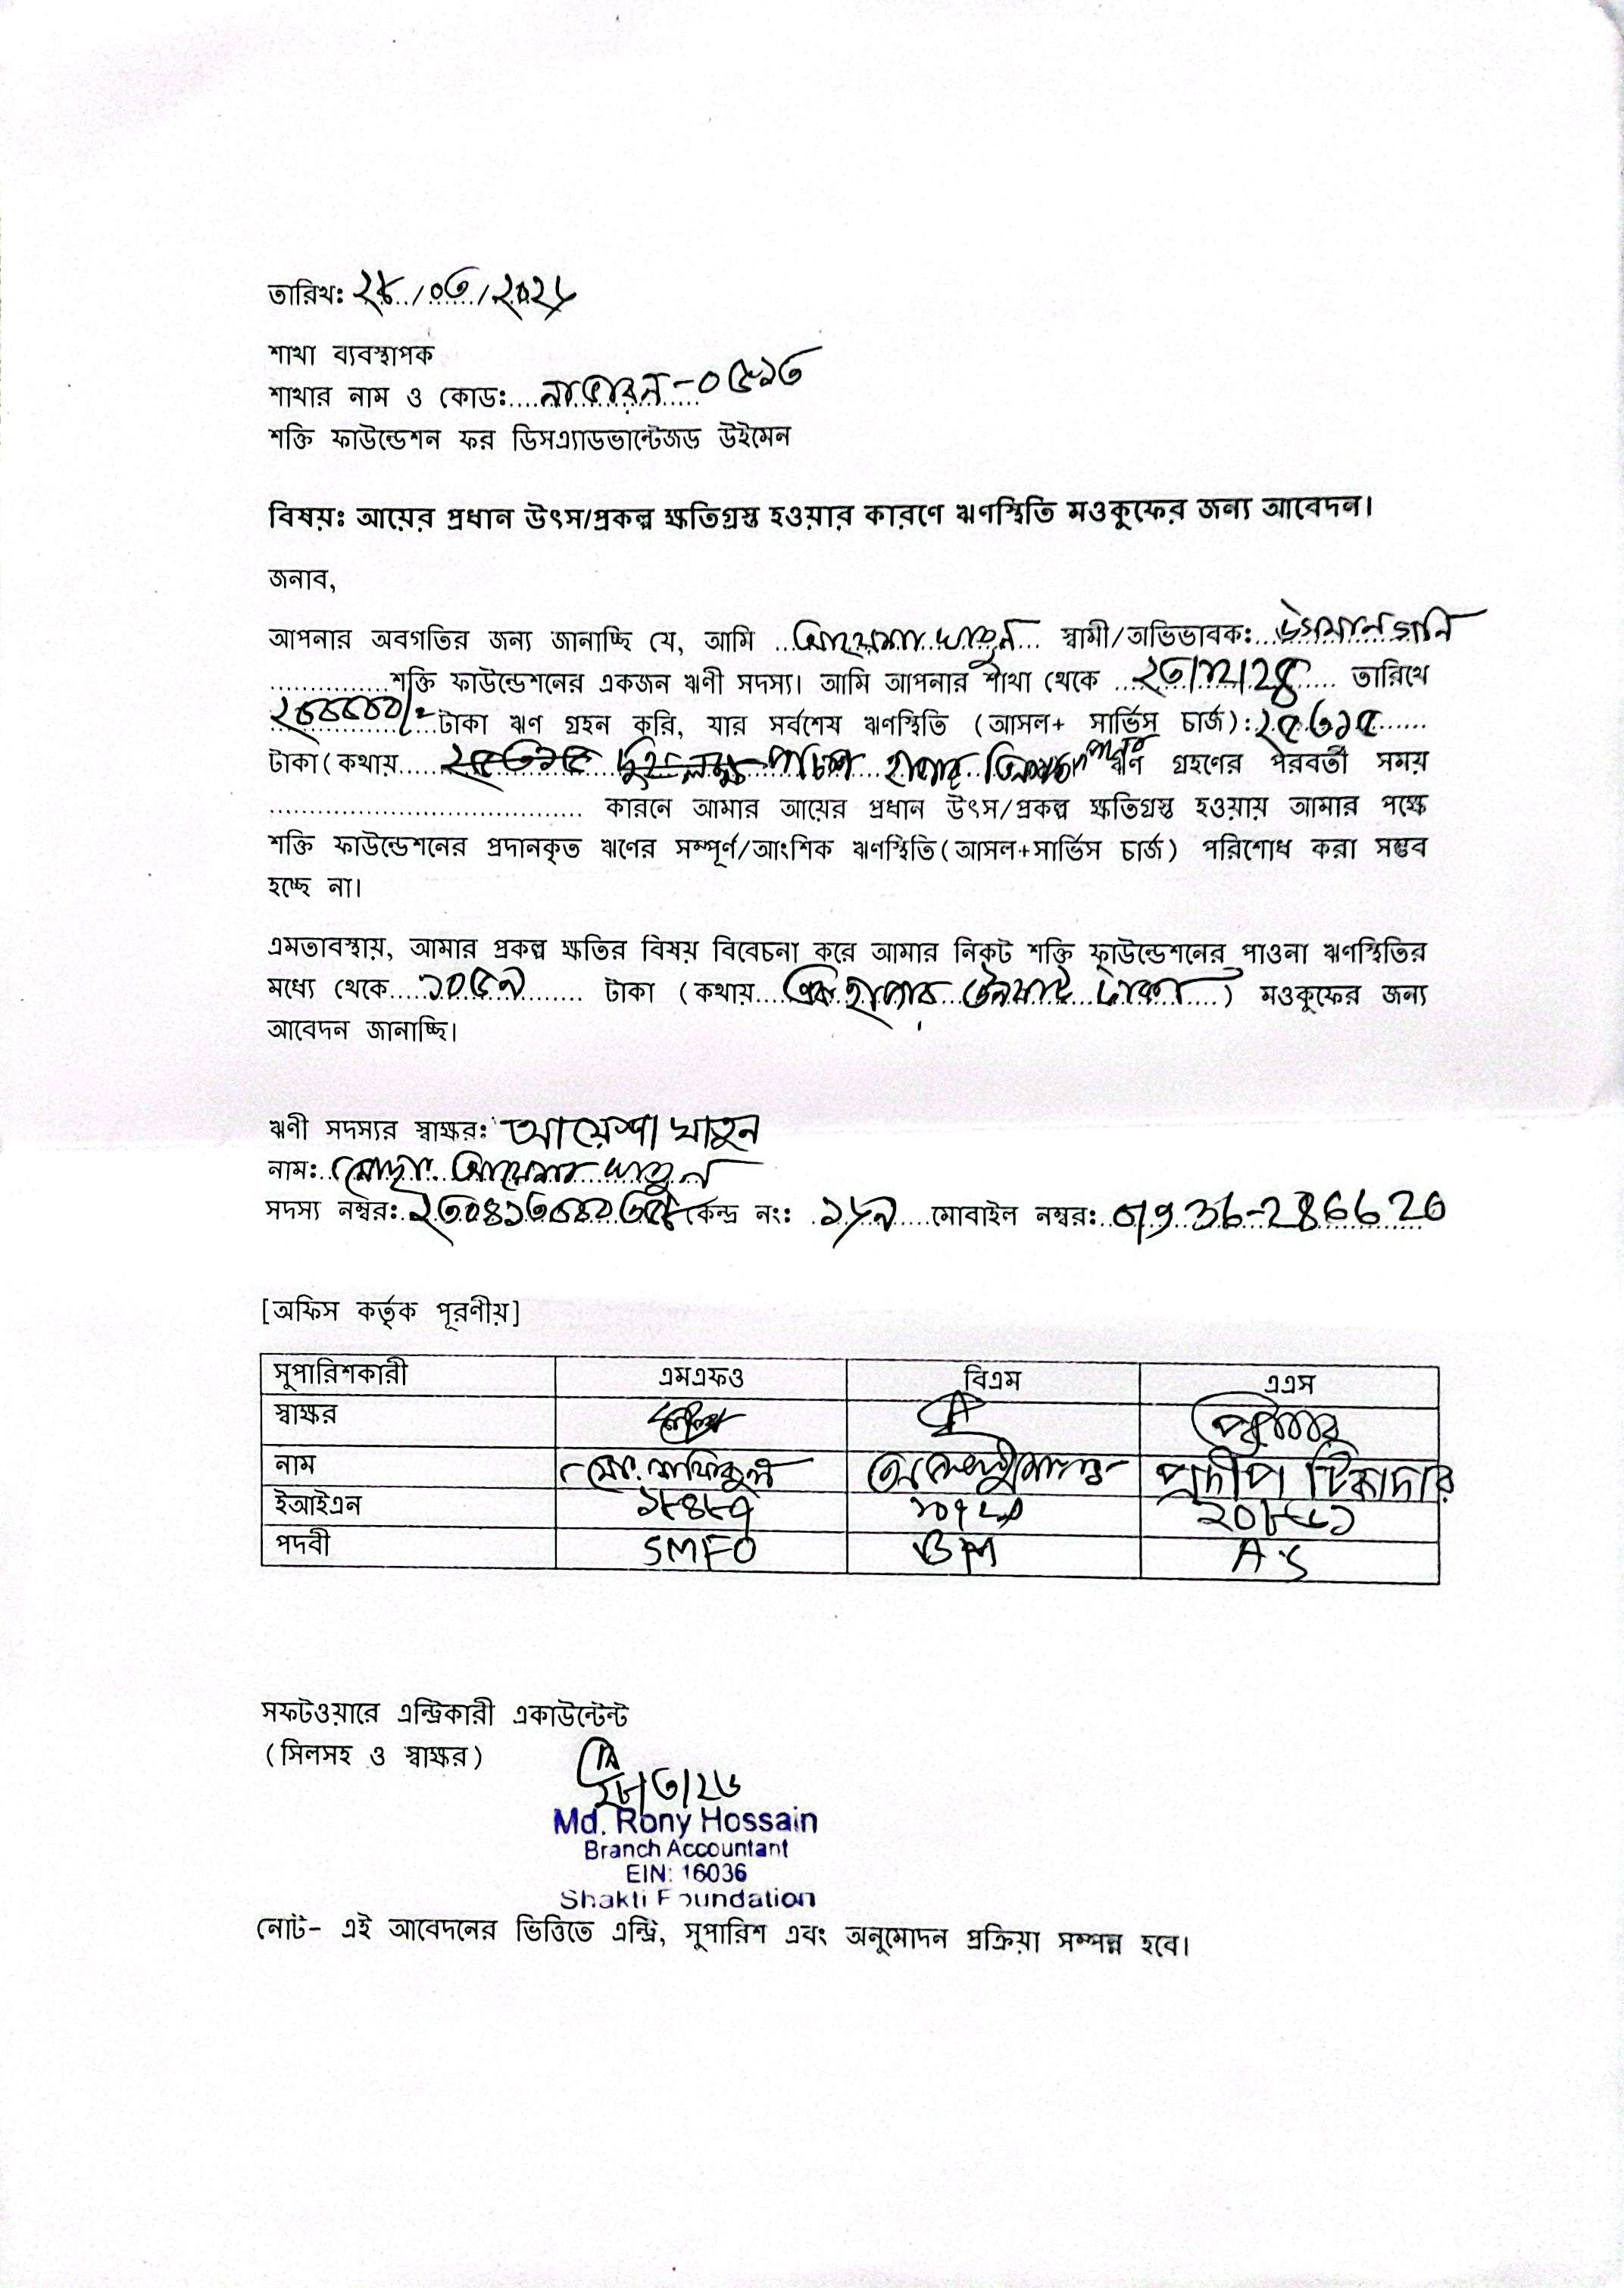 তারিখঃ ২৮/০৩/২০২৬
শাখা ব্যবস্থাপক
শাখার নাম ও কোডঃ.... -০৫১৩
শক্তি ফাউন্ডেশন ফর ডিসএ্যাডভান্টেজড উইমেন
বিষয়ঃ আয়ের প্রধান উৎস/প্রকল্প ক্ষতিগ্রস্ত হওয়ার কারণে ঋণস্থিতি মওকুফের জন্য আবেদন।
জনাব,
আপনার অবগতির জন্য জানাচ্ছি যে, আমি ...আয়েশা খাতুন... স্বামী/অভিভাবকঃ...ওসমান গনি
................শক্তি ফাউন্ডেশনের একজন ঋণী সদস্য। আমি আপনার শাখা থেকে ....২৩/১২/24..... তারিখে
২০০০০০/= টাকা ঋণ গ্রহন করি, যার সর্বশেষ ঋণস্থিতি (আসল+ সার্ভিস চার্জ):২৫৩১৫......
টাকা(কথায়.... পঁচিশ হাজার তিনশত পনের ঋণ গ্রহণের পরবর্তী সময়
........................................ কারনে আমার আয়ের প্রধান উৎস/প্রকল্প ক্ষতিগ্রস্ত হওয়ায় আমার পক্ষে
শক্তি ফাউন্ডেশনের প্রদানকৃত ঋণের সম্পূর্ণ/আংশিক ঋণস্থিতি(আসল+সার্ভিস চার্জ) পরিশোধ করা সম্ভব
হচ্ছে না।
এমতাবস্থায়, আমার প্রকল্প ক্ষতির বিষয় বিবেচনা করে আমার নিকট শক্তি ফাউন্ডেশনের পাওনা ঋণস্থিতির
মধ্যে থেকে....১০৫৯........ টাকা (কথায়....এক হাজার উনষাট টাকা....) মওকুফের জন্য
আবেদন জানাচ্ছি।
ঋণী সদস্যর স্বাক্ষরঃ আয়েশা খাতুন
নামঃ মোছাঃ আয়েশা খাতুন
সদস্য নম্বরঃ কেন্দ্র নংঃ .১৬৯....মোবাইল নম্বরঃ.01936-286620
[অফিস কর্তৃক পূরণীয়]
সুপারিশকারী এমএফও বিএম এএস
স্বাক্ষর
নাম মোঃ শফিকুল প্রদীপ টিকাদার
ইআইএন ১৮৪৮৭
পদবী SMFO BM A.S
সফটওয়ারে এন্ট্রিকারী একাউন্টেন্ট
(সিলসহ ও স্বাক্ষর)
২৮/৩/২৬
Md. Rony Hossain
Branch Accountant
EIN: 16036
Shakti Foundation
নোট- এই আবেদনের ভিত্তিতে এন্ট্রি, সুপারিশ এবং অনুমোদন প্রক্রিয়া সম্পন্ন হবে।